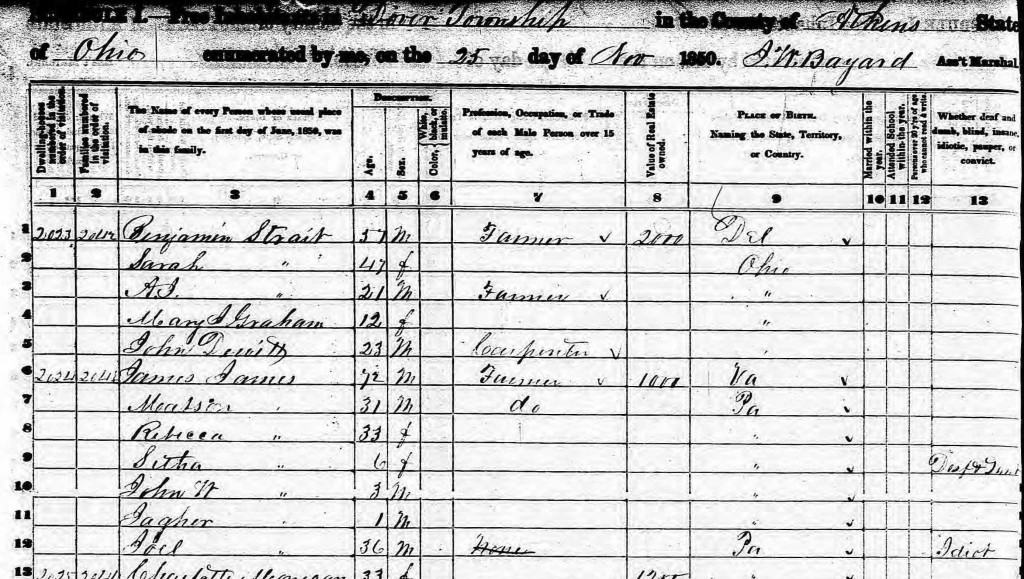 SCHEDULE I.—Free Inhabitants in Dover Township in the County of Athens State
of Ohio enumerated by me, on the 25 day of Nov 1850. J. W. Bayard Ass't Marshal.
Dwelling-houses numbered in the order of visitation.
Families numbered in the order of visitation.
The Name of every Person whose usual place of abode on the first day of June, 1850, was in this family.
DESCRIPTION.
Age.
Sex.
White, black, or mulatto.
Color,
Profession, Occupation, or Trade of each Male Person over 15 years of age.
Value of Real Estate owned.
PLACE OF BIRTH. Naming the State, Territory, or Country.
Married within the year.
Attended School within the year.
Persons over 20 y'rs of age who cannot read & write.
Whether deaf and dumb, blind, insane, idiotic, pauper, or convict.
1 2 3 4 5 6 7 8 9 10 11 12 13
1 2023 Benjamin Strait 57 M Farmer 2000 Del
2 Sarah " 47 f Ohio
3 A.J. " 21 M Farmer "
4 Mary J Graham 12 f "
5 John Dewitt 23 M Carpenter "
6 2024 James James 72 M Farmer 1000 Va
7 " 31 M do Pa
8 Rebecca " 33 f "
9 " 6 f " Deaf &
10 John W " 3 M "
11 " 1 M "
12 Joel " 36 M None Pa Idiot
13 2025 Charlotte 33 f 1200 "